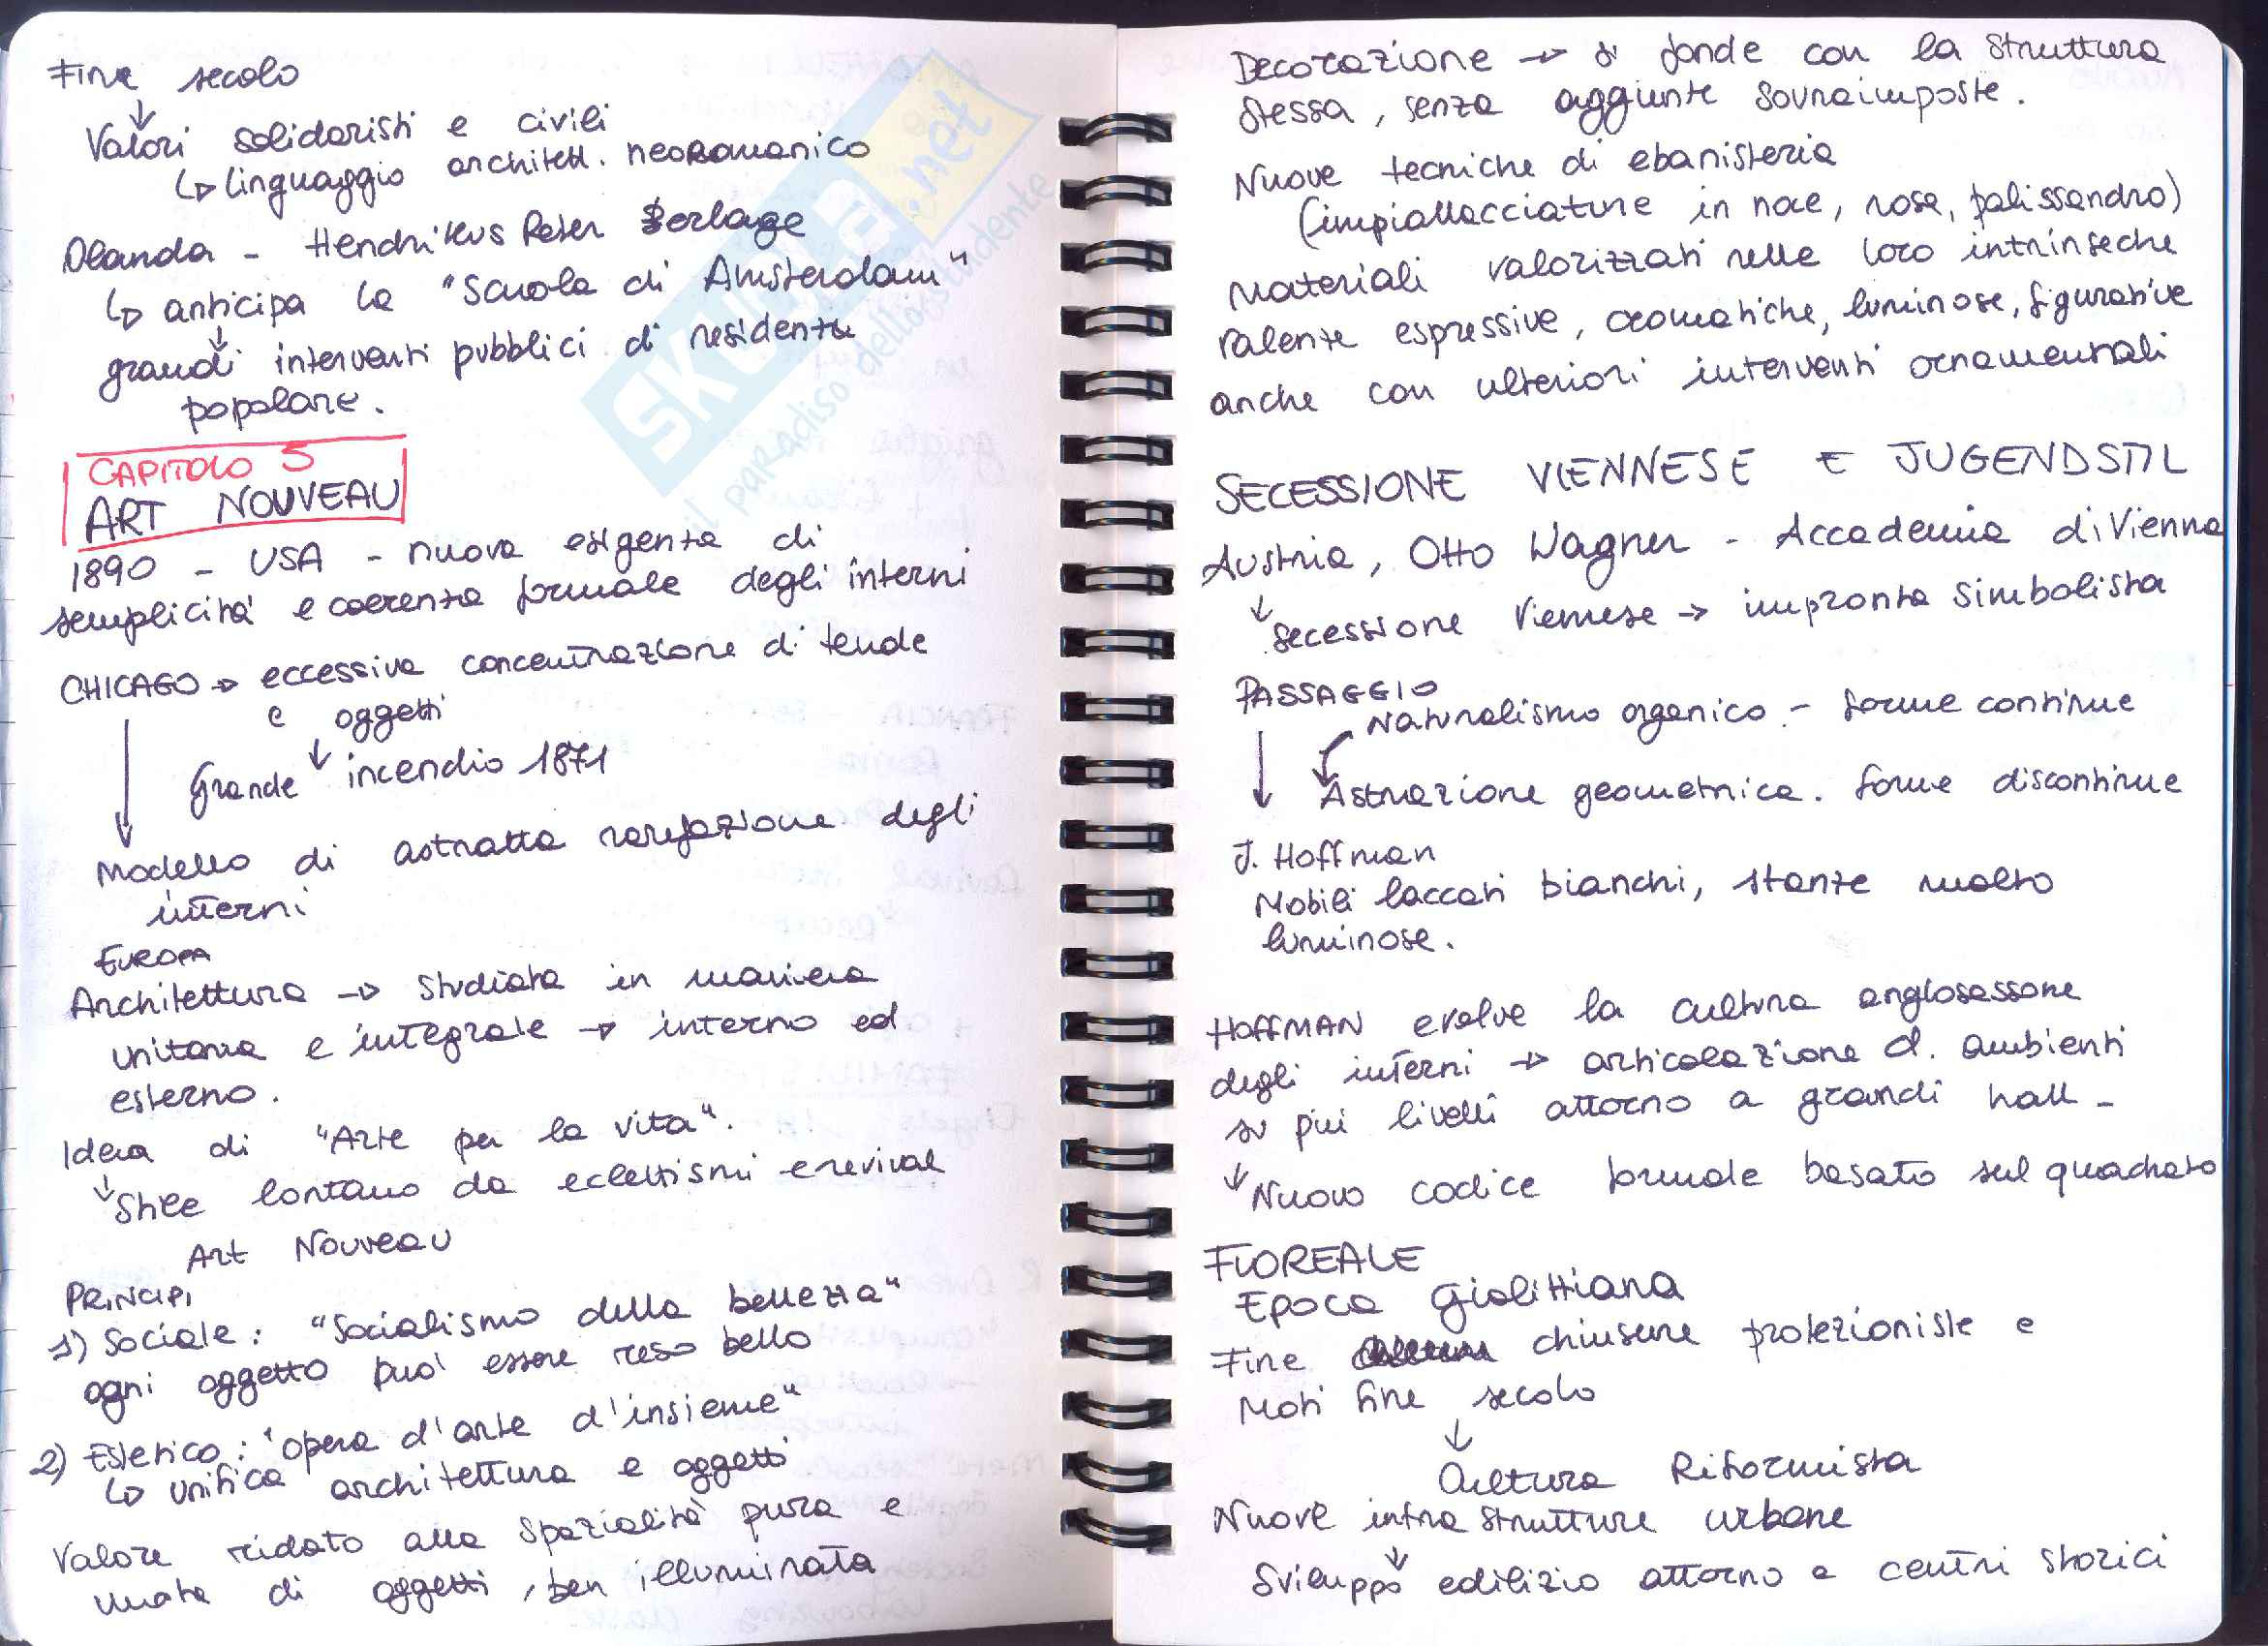 Fine secolo
↓
Valori solidaristi e civili
↳ linguaggio architett. neoromanico
Olanda - Hendrikus Peter Berlage
↳ anticipa la "Scuola di Amsterdam"
↓
grandi interventi pubblici di residenza
popolare.
CAPITOLO 5
ART NOUVEAU
1890 - USA - nuova esigenza di
semplicità e coerenza formale degli interni
CHICAGO → eccessiva concentrazione di tende
e oggetti
↓
Grande incendio 1871
Modello di astratta rarefazione degli
interni
EUROPA
Architettura → studiata in maniera
unitaria e integrale → interno ed
esterno.
Idea di "Arte per la vita".
↓ Stile lontano da eclettismi e revival
Art Nouveau
PRINCIPI
1) Sociale: "Socialismo della bellezza"
ogni oggetto può essere reso bello
2) Estetico: "opera d'arte d'insieme"
↳ unifica architettura e oggetti
Valore ridato alla spazialità pura e
vuota di oggetti, ben illuminata
Decorazione → si fonde con la struttura
stessa, senza aggiunte sovraimposte.
Nuove tecniche di ebanisteria
(impiallacciature in noce, rosa, palissandro)
Materiali valorizzati nelle loro intrinseche
valenze espressive, cromatiche, luminose, figurative
anche con ulteriori interventi ornamentali
SECESSIONE VIENNESE E JUGENDSTIL
Austria, Otto Wagner - Accademia di Vienna
↓
Secessione Viennese → impronta simbolista
PASSAGGIO
Naturalismo organico - forme continue
Astrazione geometrica. forme discontinue
J. Hoffman
Mobili laccati bianchi, stanze molto
luminose.
HOFFMAN evolve la cultura anglosassone
degli interni → articolazione d. ambienti
su più livelli attorno a grandi hall -
↓ Nuovo codice formale basato sul quadrato
FLOREALE
Epoca Giolittiana
Fine chiusure protezioniste e
Moti fine secolo
↓
Cultura Riformista
Nuove infrastrutture urbane
↓
Sviluppo edilizio attorno a centri storici
skuola.net
il paradiso dello studente